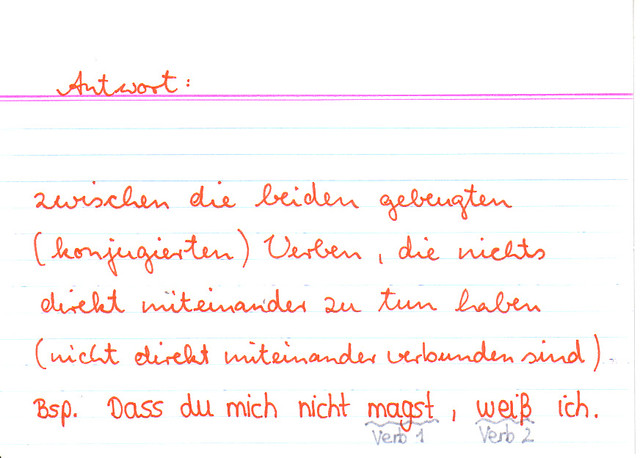 Antwort:
zwischen die beiden gebeugten
(konjugierten) Verben, die nichts
direkt miteinander zu tun haben
(nicht direkt miteinander verbunden sind)
Bsp. Dass du mich nicht magst, weiß ich.
Verb 1 Verb 2